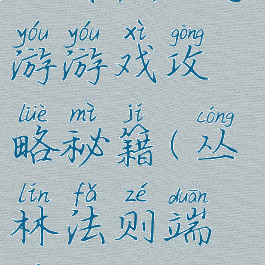 yóu yóu xì gōng
游游戏攻
lüè mì jí cóng
略秘籍(丛
lín fǎ zé duān
林法则端